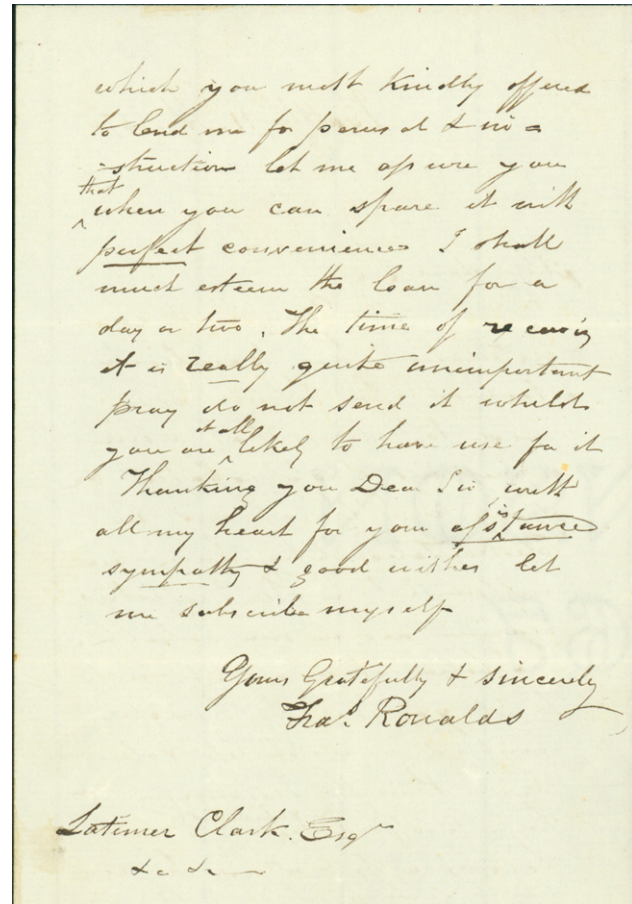 which you most kindly offered
to lend me for perusal & in=
=struction let me assure you
that
when you can spare it with
perfect convenience I shall
much esteem the loan for a
day or two. The time of
it is really quite unimportant
pray do not send it whilst
you are at all likely to have use for it
Thanking you Dear Sir with
all my heart for your assistance
sympathy & good wishes let
me subscribe myself
Yours Gratefully & sincerely
Fras. Ronalds
Latimer Clark. Esqr
&c &c